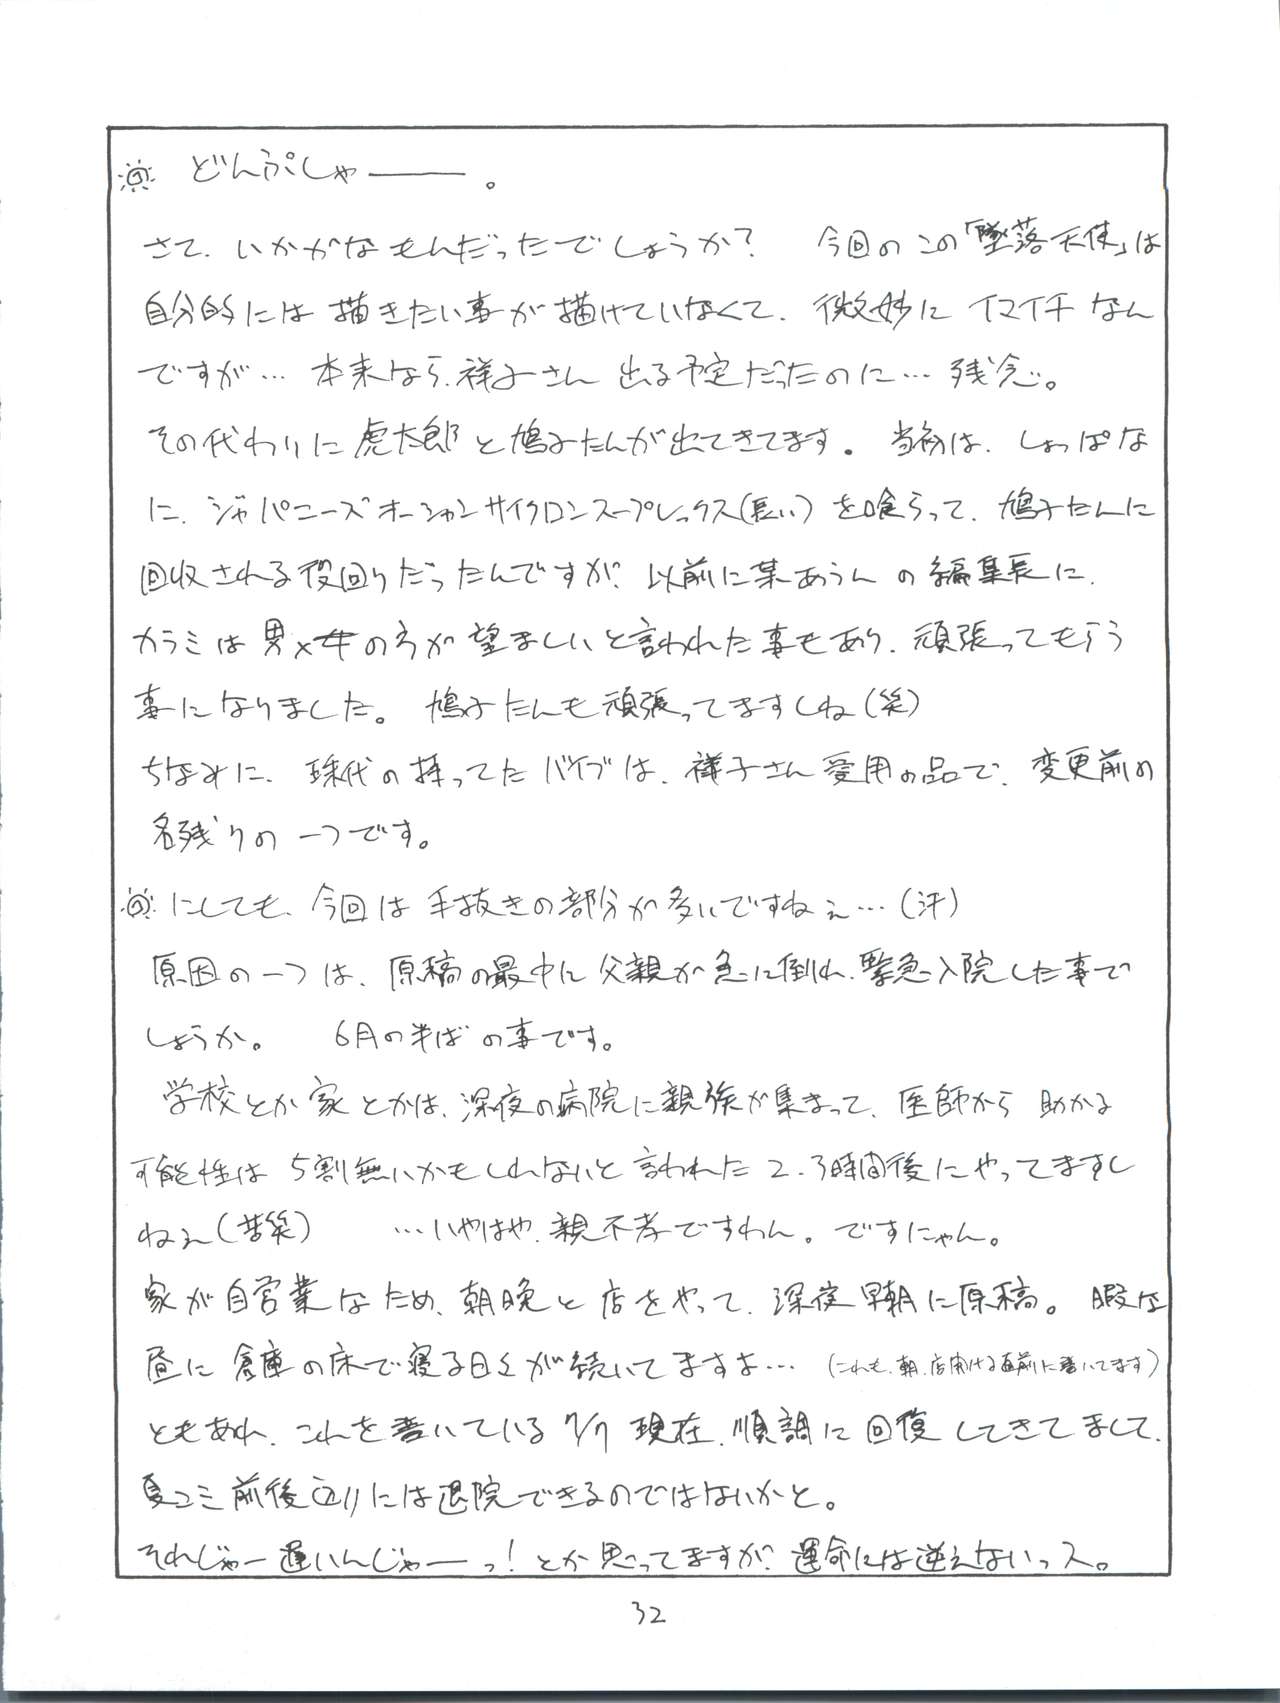 どんぷしゃー。
さて、いかがなもんだったでしょうか? 今回のこの「墜落天使」は
自分的には描きたい事が描けていなくて、微妙にイマイチなん
ですが… 本来なら、祥子さん出る予定だったのに… 残念。
その代わりに虎太郎と鳩子たんが出てきてます。当初は、しょっぱな
に、ジャパニーズオーシャンサイクロンスープレックス(長い)を喰らって、鳩子たんに
回収される役回りだったんですが、以前に某あうんの編集長に、
カラミは男×女の方が望ましいと言われた事もあり、頑張ってもらう
事になりました。鳩子たんも頑張ってますしね(笑)
ちなみに、珠代の持ってたバイブは、祥子さん愛用の品で、変更前の
名残りの一つです。
にしても、今回は手抜きの部分が多いですねぇ…(汗)
原因の一つは、原稿の最中に父親が急に倒れ、緊急入院した事で
しょうか。 6月の半ばの事です。
学校とか家とかは、深夜の病院に親族が集まって、医師から助かる
可能性は5割無いかもしれないと言われた2.3時間後にやってますし
ねぇ(苦笑) …いやはや、親不孝ですわん。ですにゃん。
家が自営業なため、朝晩と店をやって、深夜早朝に原稿。暇な
昼に倉庫の床で寝る日々が続いてますよ…(これも、朝、店開ける直前に書いてます)
ともあれ、これを書いている7/7現在、順調に回復してきてまして、
夏コミ前後辺りには退院できるのではないかと。
それじゃー遅いんじゃーっ!とか思ってますが、運命には逆えないっス。
32